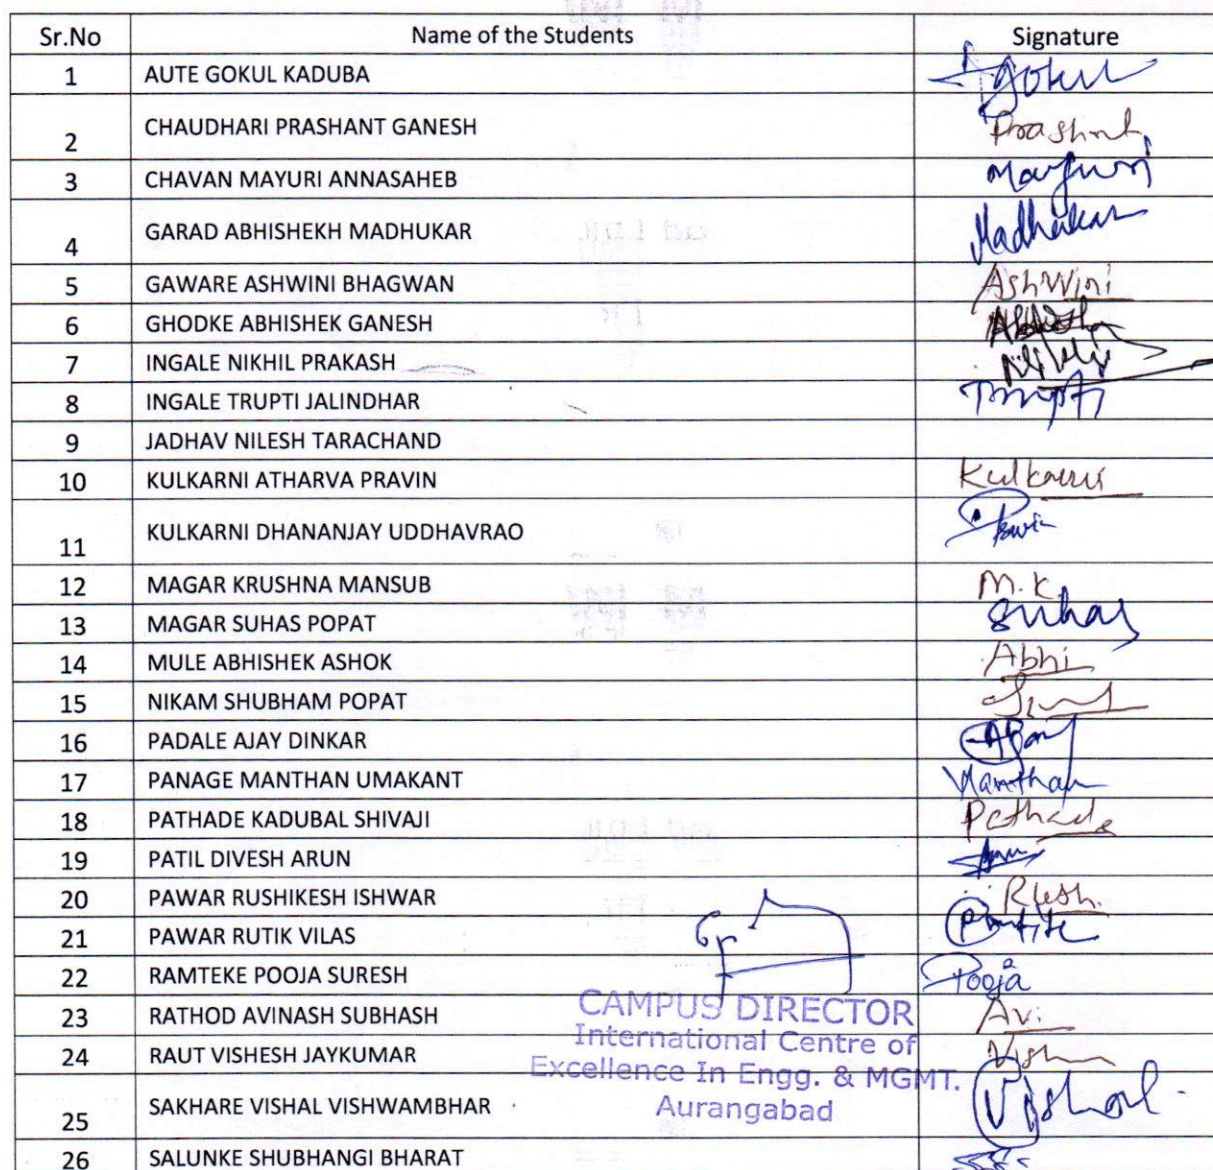 Sr.No Name of the Students Signature
1 AUTE GOKUL KADUBA Agokul
2 CHAUDHARI PRASHANT GANESH Prashant
3 CHAVAN MAYURI ANNASAHEB Mayuri
4 GARAD ABHISHEKH MADHUKAR Madhukar
5 GAWARE ASHWINI BHAGWAN Ashwini
6 GHODKE ABHISHEK GANESH
7 INGALE NIKHIL PRAKASH
8 INGALE TRUPTI JALINDHAR Trupti
9 JADHAV NILESH TARACHAND
10 KULKARNI ATHARVA PRAVIN Kulkarni
11 KULKARNI DHANANJAY UDDHAVRAO
12 MAGAR KRUSHNA MANSUB M.K.
13 MAGAR SUHAS POPAT Suhas
14 MULE ABHISHEK ASHOK Abhi
15 NIKAM SHUBHAM POPAT
16 PADALE AJAY DINKAR Ajay
17 PANAGE MANTHAN UMAKANT Manthan
18 PATHADE KADUBAL SHIVAJI Pathade
19 PATIL DIVESH ARUN
20 PAWAR RUSHIKESH ISHWAR Rush.
21 PAWAR RUTIK VILAS
22 RAMTEKE POOJA SURESH Pooja
23 RATHOD AVINASH SUBHASH Avi
24 RAUT VISHESH JAYKUMAR
25 SAKHARE VISHAL VISHWAMBHAR Vishal
26 SALUNKE SHUBHANGI BHARAT
CAMPUS DIRECTOR
International Centre of
Excellence In Engg. & MGMT.
Aurangabad